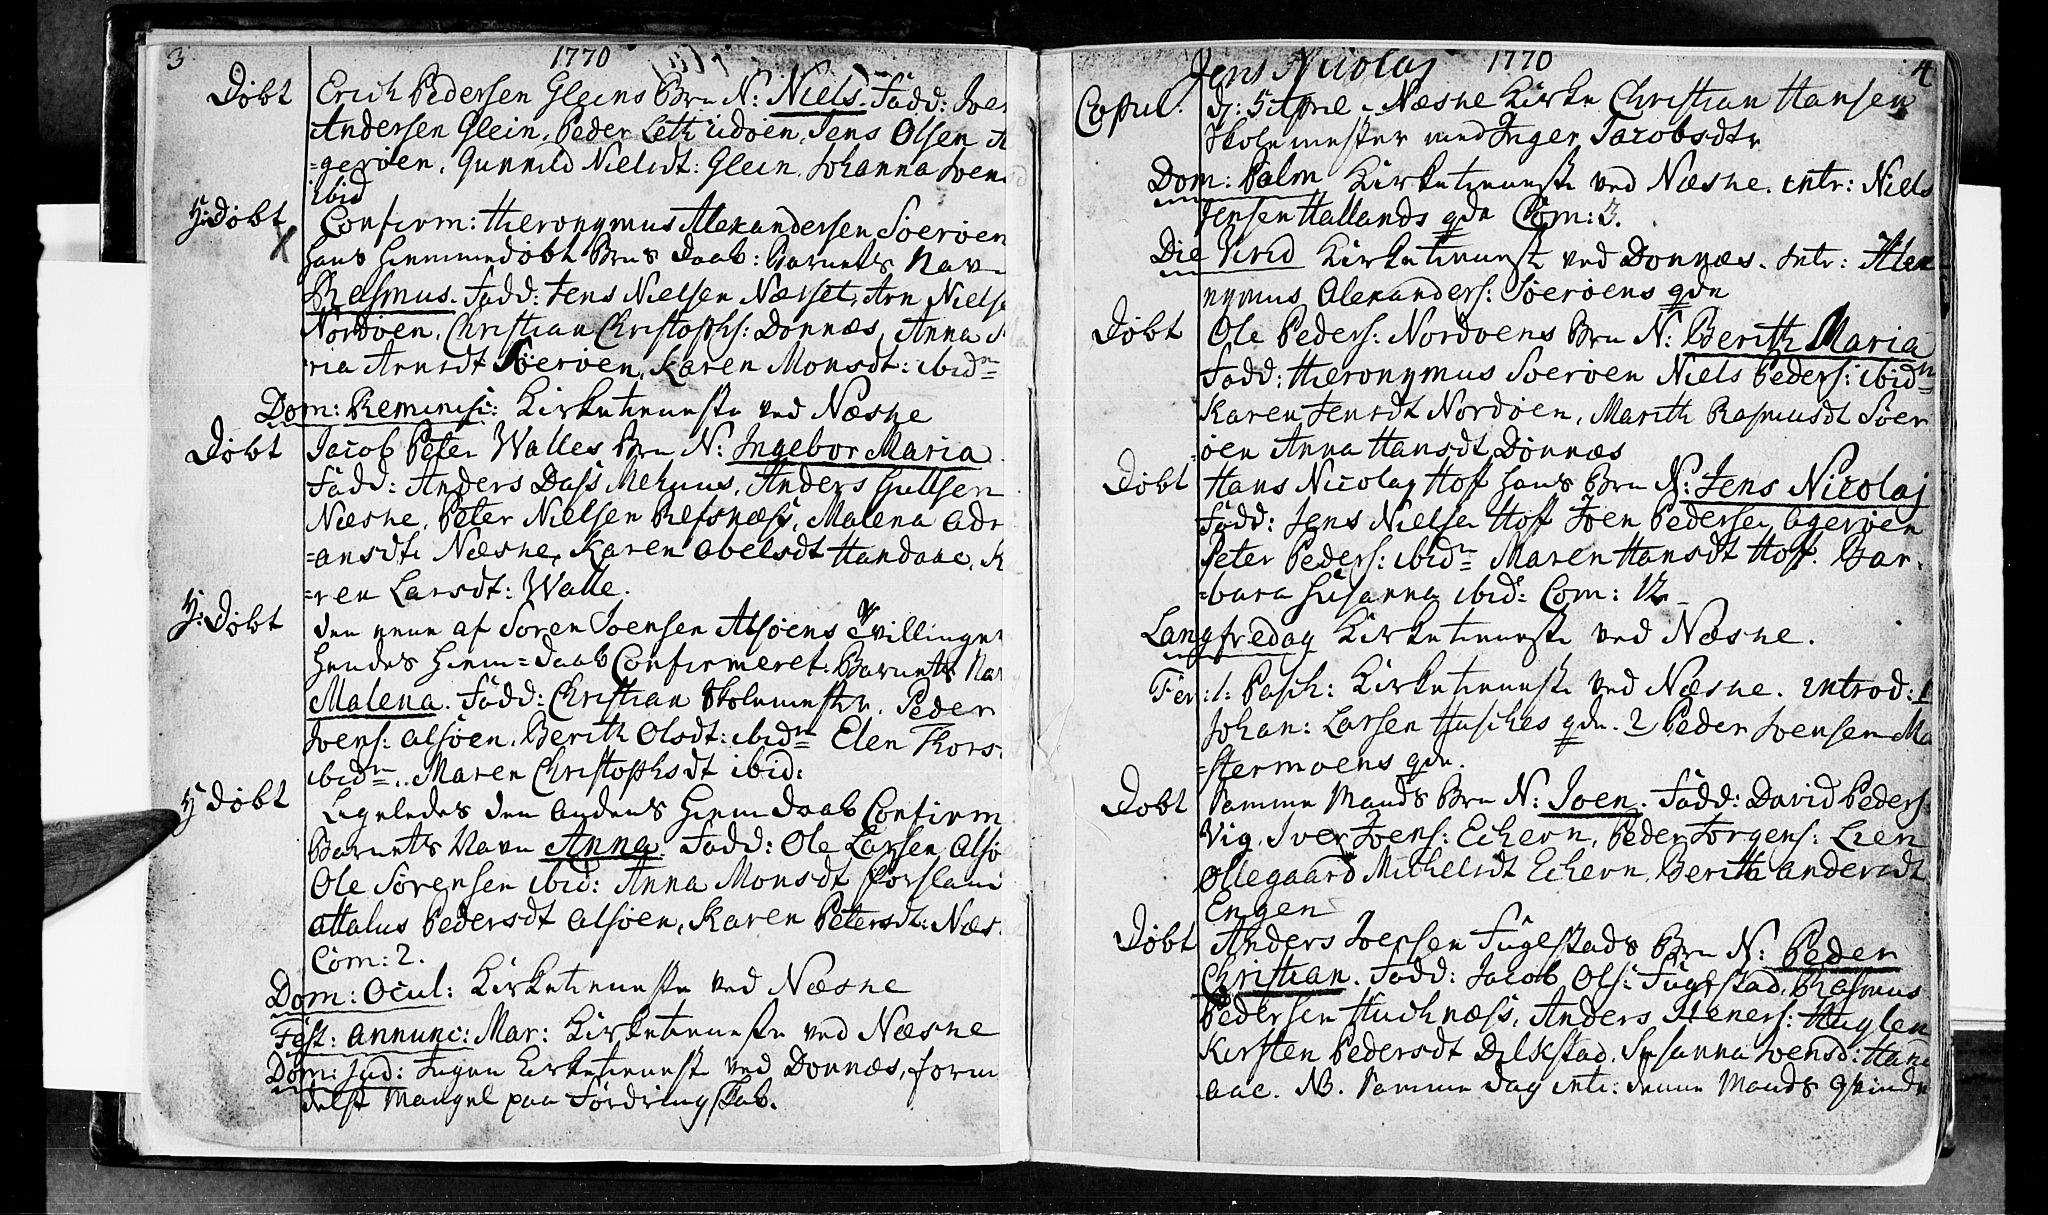 3
1770
Døbt Erich Pedersen Gleins Brn N: Niels. Fadd: Joen
Andersen Glein, Peder Leth Udøen, Jens Olsen A
=gerøen, Gunnild Nielsdt: Glein, Johanna Joens
ibid
H:Døbt Confirm: Hieronymus Alexandersen Søerøen
X hans hiemmedøbt Brns daab: Barnets Nav
Rasmus. Fadd: Jens Nielsen Nærset, Arn Nielse
Nordøen, Christian Christophs: Dønnæs, Anna Ma
ria Arnsdt Søerøen, Karen Monsdt: ibidm
Dom: Reminisc: Kirketieneste ved Næsne
Døbt Jacob Peter Walles Brn N: Ingebor Maria
Fadd: Anders Dass Mehuus, Anders Gullsen
Næsne, Peter Nielsen Refsnæss, Malena Adr
=ansdt: Næsne, Karen Abelsdt Handaae, K
=ren Larsdt: Walle.
H:Døbt den eene af Søren Joensen Alsøens Tvillinger
hendes hiem=daab Confirmeret: Barnets Nav
Malena. Fadd: Christian Skolemester, Peder
Joens: Alsøen, Berith Olsdt: ibidm Elen Thors:
ibidm.. Maren Christophsdt ibid:
H døbt Ligeledes den andens hiemdaab Confirm
Barnets Navn Anna. Fadd: Ole Larsen Alsøe
Ole Sørensen ibid: Anna Monsdt Forsland
Attalus Pedersdt Alsøen, Karen Petersdt: Næs
Com: 2.
Dom: Ocul: Kirketieneste ved Næsne
Fest: Annunc: Mar: Kirketieneste ved Næsne
Dom: Jud: Ingen Kirketieneste ved Dønnæs, form
delst Mangel paa Førdringskab.
Jens Nicolaj 1770 4
Copul: d: 5 April i Næsne Kirke Christian Hansen
Skolemester med Inger Jacobsdtr
Dom: Palm Kirketieneste ved Næsne. intr: Niels
Jensen Hallands qde Com: 3.
Die Virid Kirketieneste ved Dønnæs. Intr:
nymus Alexanders: Søerøens qde
Døbt Ole Peders: Nordøens Brn N: Berith Maria
Fadd: Hieronymus Søerøen Niels Peders: ibidm
Karen Jensdt Nordøen, Marith Rasmusdt Søer
=øen Anna Hansdt Dønnæs
Døbt Hans Nicolay Hof hans Brn N: Jens Nicolaj
Fadd: Jens Nielsen Hoff Joen Pedersen Agerøen
Peter Peders: ibidm Maren Hansdt Hoff. Bar-
=bara Susanna ibid: Com: 12
Langfredag Kirketieneste ved Næsne.
Fer: 1: Pasch: Kirketieneste ved Næsne. introd: 1
Johan: Larsen Husches qde. 2 Peder Joensen Ma
=stermoens qde.
Døbt samme Mands Brn N: Joen. Fadd: David Peders
Vig, Iver Joens: Echern, Peder Jørgens: Lien
Ollegaard Michelsdt Echern, Berith Andersdt
Engen
Døbt Anders Joensen Fugestads Brn N: Peder
Christian. Fadd: Jacob Ols: Fugestad, Rasmus
Pedersen Huchnæss, Anders Steners: Huglen
Kirsten Pedersdt Dilkstad, Susanna Joensd: Hand
aae. NB. samme dag intr: denne Mands qvinde